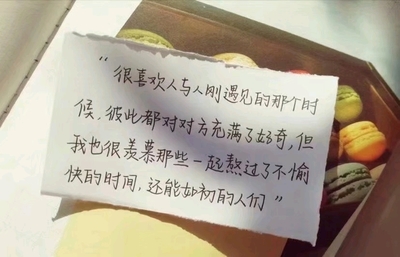 “很喜欢人与人刚遇见的那个时
候，彼此都对对方充满了好奇，但
我也很羡慕那些一起熬过了不愉
快的时间，还能如初的人们”